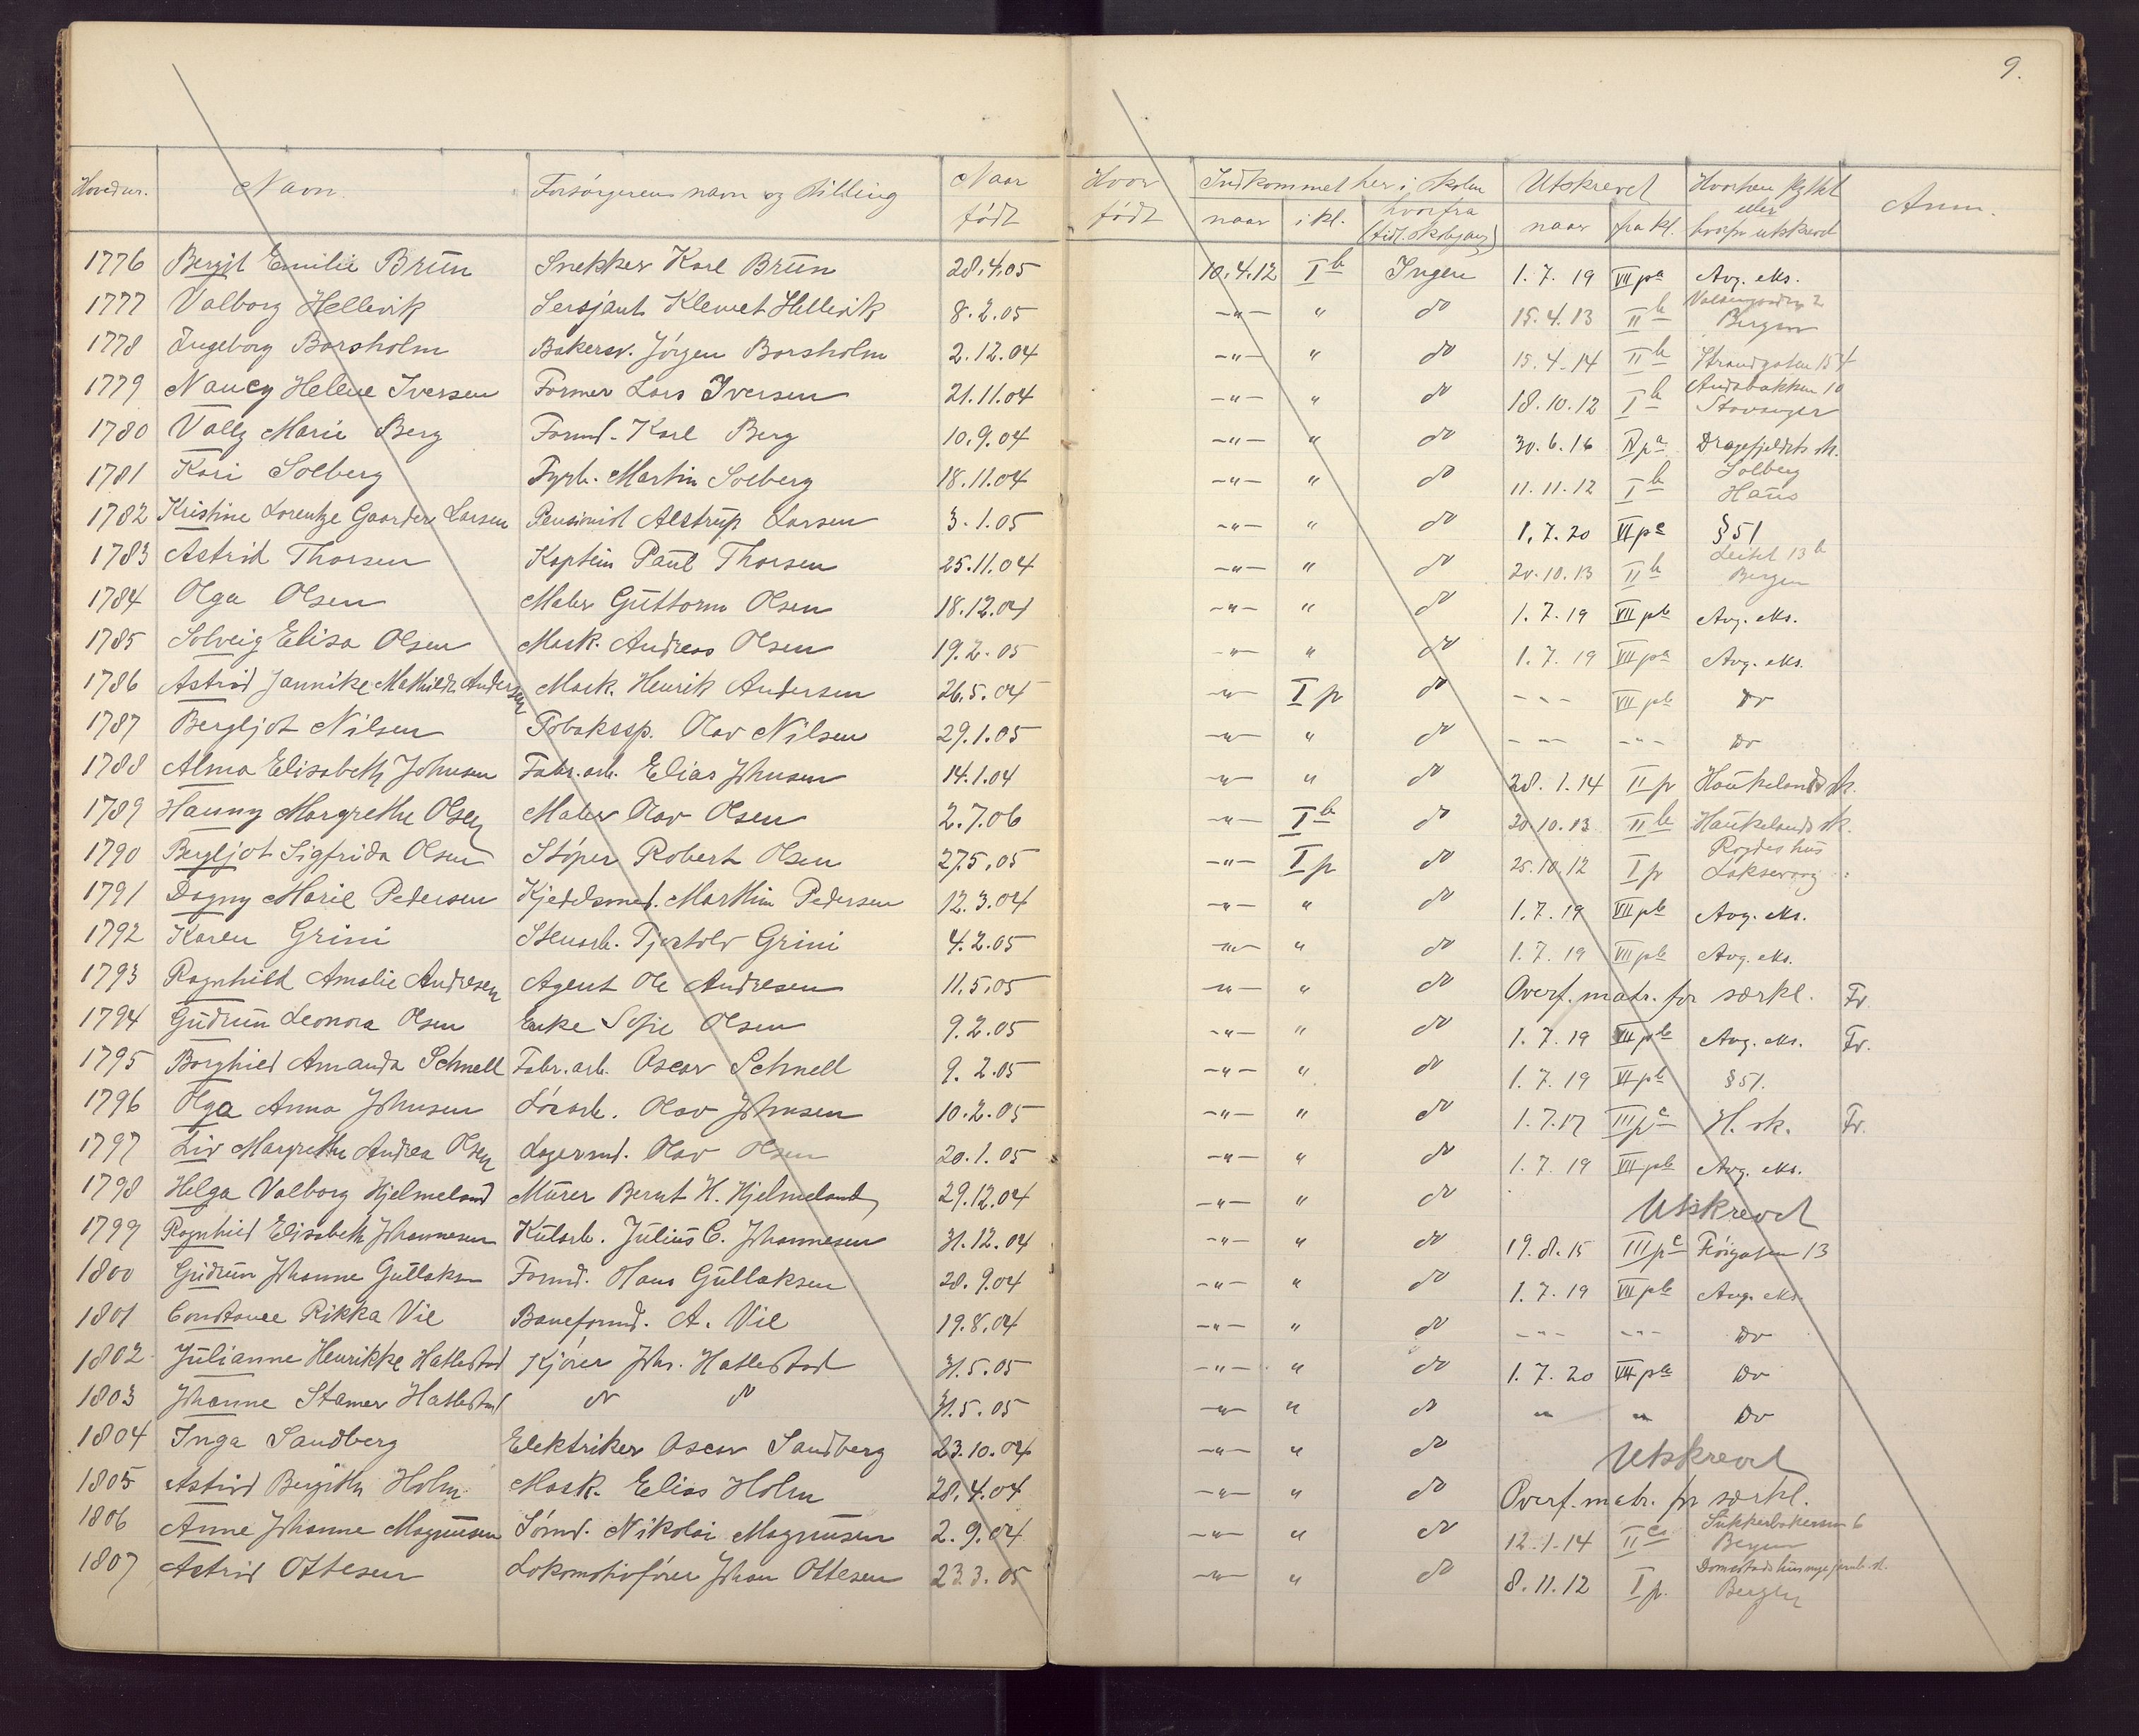 9.
Hovednr. Navn. Forsørgerens navn og stilling Naar født Hvor født Indkommet her i skolen naar i kl. hvorfra (tidl. skolegang) Utskrevet naar fra kl. Hvorhen flyttet eller hvorfor utskrevet Anm.
1776 Bergit Emilie Brün Snekker Karl Brün 28.4.05 10.4.12 I b Ingen 1.7.19 VII pa Avg. eks.
1777 Valborg Hellevik Sersjant Klemet Hellevik 8.2.05 -"- " do 15.4.13 II b Bergen
1778 Ingeborg Borsholm Bakersv. Jörgen Borsholm 2.12.04 -"- " do 15.4.14 II b Strandgaten 154
1779 Nancy Helene Iversen Former Lars Iversen 21.11.04 -"- " do 18.10.12 I b Andabakken 10 Stavanger
1780 Vally Marie Berg Formd. Karl Berg 10.9.04 -"- " do 30.6.16 IV pa Dragefjeldets sk.
1781 Kari Solberg Fyrb. Martin Solberg 18.11.04 -"- " do 11.11.12 I b Solberg Haus
1782 Kristine Lorentze Gaarder Larsen Pensionist Alstrup Larsen 3.1.05 -"- " do 1.7.20 VI pa § 51
1783 Astrid Thorsen Kaptein Paul Thorsen 25.11.04 -"- " do 20.10.13 II b Leitet 13 b Bergen
1784 Olga Olsen Maler Guttorm Olsen 18.12.04 -"- " do 1.7.19 VII pb Avg. eks.
1785 Solveig Elisa Olsen Mask. Andreas Olsen 19.2.05 -"- " do 1.7.19 VII pa Avg. eks.
1786 Astrid Jannike Mathilde Andersen Mask. Henrik Andersen 26.5.04 -"- I p do -"- VII pb Do
1787 Bergljot Nilsen Tobakssp. Olav Nilsen 29.1.05 -"- " do -"- -"- Do
1788 Alma Elisabeth Johnsen Fabr.arb. Elias Johnsen 14.1.04 -"- " do 28.1.14 II p Haukelands sk.
1789 Hanny Margrethe Olsen Maler Olav Olsen 2.7.06 -"- I b do 20.10.13 II b Haukelands sk.
1790 Bergljot Sigfrida Olsen Støper Robert Olsen 27.5.05 -"- I p do 25.10.12 I p Rogdes hus Laksevaag
1791 Dagny Marie Pedersen Kjedelsmed. Marthin Pedersen 12.3.04 -"- " do 1.7.19 VII pb Avg. eks.
1792 Karen Grini Stenarb. Tjostolv Grini 4.2.05 -"- " do 1.7.19 VII pb Avg. eks.
1793 Ragnhild Amalie Andresen Agent Ole Andresen 11.5.05 -"- " do Overf. matr. for særkl. Fr.
1794 Gudrun Leonora Olsen Enke Sofie Olsen 9.2.05 -"- " do 1.7.19 VII pb Avg. eks. Fr.
1795 Borghild Amanda Schnell Fabr.arb. Oscar Schnell 9.2.05 -"- " do 1.7.19 VI pb § 51.
1796 Olga Anna Johnsen Løsarb. Olav Johnsen 10.2.05 -"- " do 1.7.17 III pc H. sk. Fr.
1797 Liv Margrethe Andrea Olsen Lagermd. Olav Olsen 20.1.05 -"- " do 1.7.19 VII pb Avg. eks.
1798 Helga Valborg Hjelmeland Murer Bernt H. Hjelmeland 29.12.04 -"- " do Utskrevet
1799 Ragnhild Elisabeth Johannesen Kularb. Julius C. Johannesen 31.12.04 -"- " do 19.8.15 III pc 13
1800 Gudrun Johanne Gullaksen Formd. Hans Gullaksen 28.9.04 -"- " do 1.7.19 VII pb Avg. eks.
1801 Constance Rikka Vie Baneformd. A. Vie 19.8.04 -"- " do -"- -"- Do
1802 Julianne Henrikke Hatlestad Kjører Johs. Hatlestad 31.5.05 -"- " do 1.7.20 VII pa Do
1803 Johanne Stamer Hatlestad do do 31.5.05 -"- " do " " Do
1804 Inga Sandberg Elektriker Oscar Sandberg 23.10.04 -"- " do Utskrevet
1805 Astrid Bergith Holm Mask. Elias Holm 28.4.04 -"- " do Overf. matr. for særkl.
1806 Anne Johanne Magnusen Sømd. Nikolai Magnusen 2.9.04 -"- " do 12.1.14 II c Bergen
1807 Astrid Ottesen Lokomotivfører Johan Ottesen 23.3.05 -"- " do 8.11.12 I p. Bergen